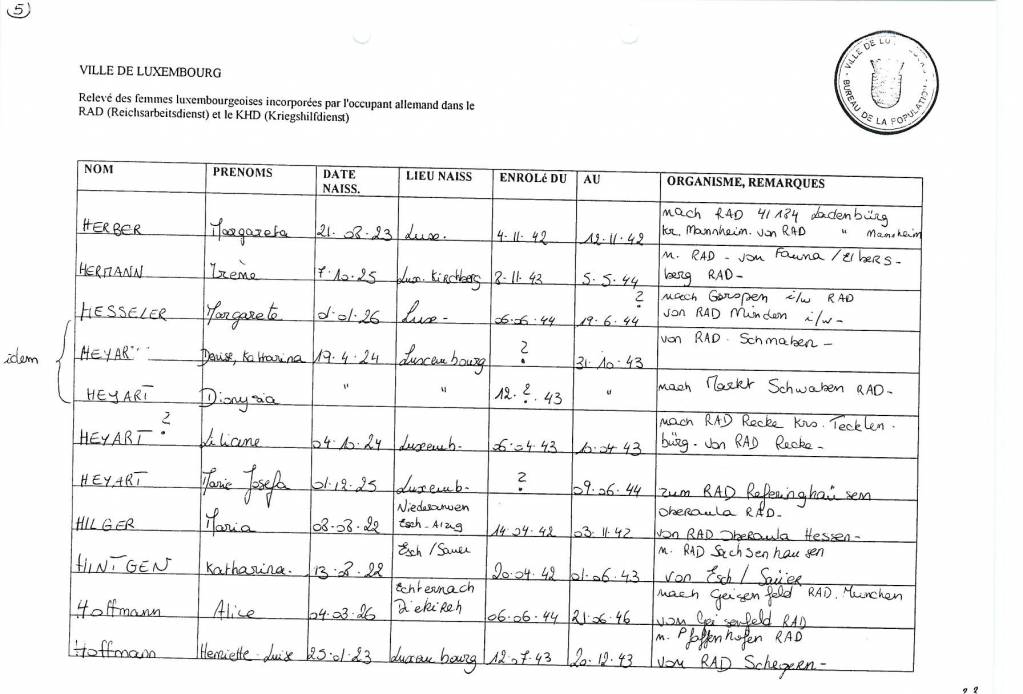 5
VILLE DE LUXEMBOURG
VILLE DE LU
BUREAU DE LA POPULATION
Relevé des femmes luxembourgeoises incorporées par l'occupant allemand dans le
RAD (Reichsarbeitsdienst) et le KHD (Kriegshilfdienst)
NOM PRENOMS DATE NAISS. LIEU NAISS ENROLé DU AU ORGANISME, REMARQUES
HERBER Margareta 21.08.23 Luxe. 4.11.42 12.11.42 nach RAD 41184 Ladenbürg
kr. Mannheim. von RAD " Mannheim
HERMANN Irène 7.10.25 Lux. Kirchberg 8.11.43 5.5.44 n. RAD - von Fauna / Elbers-
berg RAD-
HESSELER Margarete 01.01.26 Luxe - 06.06.44 19.6.44 ? nach Geropen i/w RAD
von RAD Minden i/w-
idem
HEYAR Denise, Katharina 19.4.24 Luxembourg ? 31.10.43 von RAD. Schmaben -
HEYART Dionysia " " 12.?.43 " nach Markt Schwaben RAD-
HEYART ? Liliane 04.10.24 Luxemb- 06.04.43 10.04.43 nach RAD Recke Krs. Tecklen.
bürg. von RAD Recke-
HEYART Marie Josefa 01.12.25 Luxemb- ? 09.06.44 zum RAD Referinghausem
HILGER Maria 08.08.22 Niederanven
Esch-Alzug 14.04.42 03.11.42 Oberaula RAD-
von RAD Oberaula Hessen-
HINTGEN Katharina. 13.8.22 Esch / Sauer 20.04.42 01.06.43 n. RAD Sachsenhausen
von Esch / Saüer
Hoffmann Alice 04.03.26 Echternach
Diekirch 06.06.44 21.06.46 nach Geisenfeld RAD. Munchen
von Geisenfeld RAD
Hoffmann Henriette-Luise 25.01.23 Luxembourg 12.07.43 20.12.43 n. Pfaffenhofen RAD
von RAD Schegern-